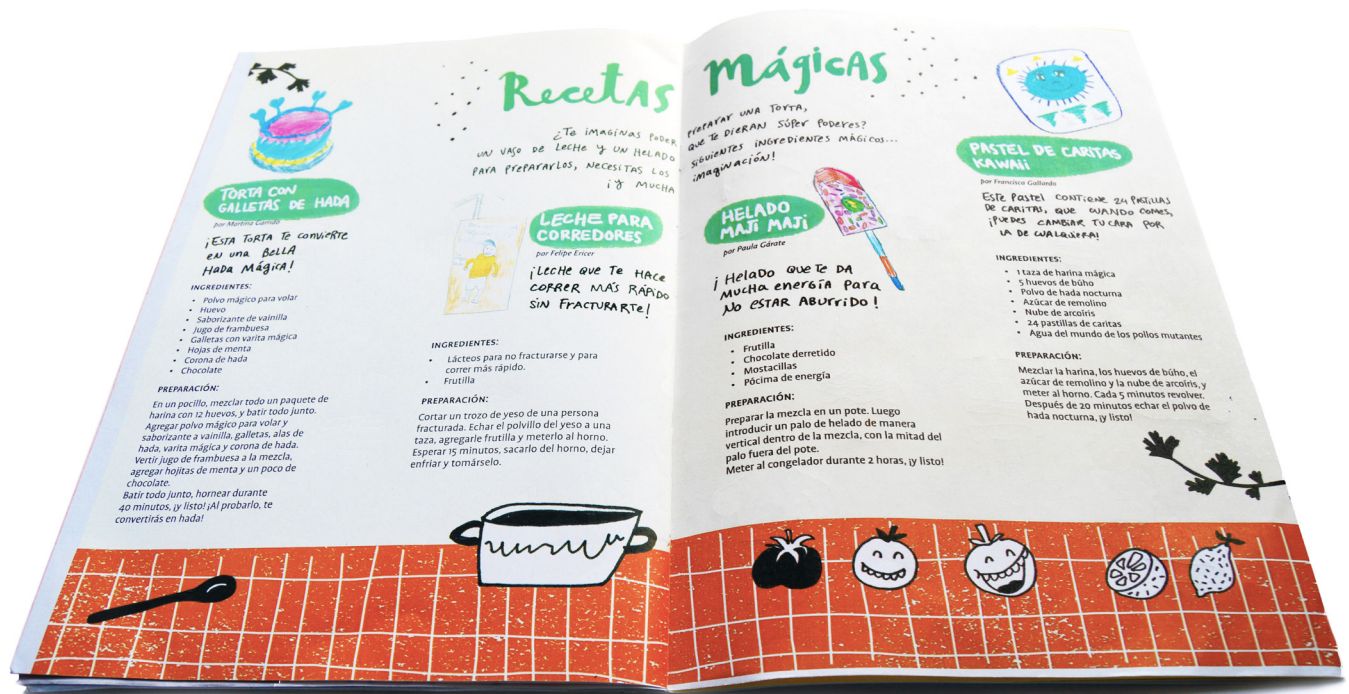 Recetas Mágicas
¿Te imaginas poder preparar una torta,
un vaso de leche y un helado que te dieran súper poderes?
Para prepararlos, necesitas los siguientes ingredientes mágicos...
¡y mucha imaginación!
TORTA CON
GALLETAS DE HADA
por Martina Garrido
¡Esta torta te convierte
en una bella
Hada Mágica!
INGREDIENTES:
• Polvo mágico para volar
• Huevo
• Saborizante de vainilla
• Jugo de frambuesa
• Galletas con varita mágica
• Hojas de menta
• Corona de hada
• Chocolate
PREPARACIÓN:
En un pocillo, mezclar todo un paquete de
harina con 12 huevos, y batir todo junto.
Agregar polvo mágico para volar y
saborizante a vainilla, galletas, alas de
hada, varita mágica y corona de hada.
Vertir jugo de frambuesa a la mezcla,
agregar hojitas de menta y un poco de
chocolate.
Batir todo junto, hornear durante
40 minutos, ¡y listo! ¡Al probarlo, te
convertirás en hada!
LECHE PARA
CORREDORES
por Felipe Ericer
¡Leche que te hace
correr más rápido
sin fracturarte!
INGREDIENTES:
• Lácteos para no fracturarse y para
correr más rápido.
• Frutilla
PREPARACIÓN:
Cortar un trozo de yeso de una persona
fracturada. Echar el polvillo del yeso a una
taza, agregarle frutilla y meterlo al horno.
Esperar 15 minutos, sacarlo del horno, dejar
enfriar y tomárselo.
HELADO
MAJI MAJI
por Paula Gárate
¡Helado que te da
mucha energía para
no estar aburrido!
INGREDIENTES:
• Frutilla
• Chocolate derretido
• Mostacillas
• Pócima de energía
PREPARACIÓN:
Preparar la mezcla en un pote. Luego
introducir un palo de helado de manera
vertical dentro de la mezcla, con la mitad del
palo fuera del pote.
Meter al congelador durante 2 horas, ¡y listo!
PASTEL DE CARITAS
KAWAii
por Francisca Gallardo
Este pastel contiene 24 pastillas
de caritas, que cuando comes,
¡puedes cambiar tu cara por
la de cualquiera!
INGREDIENTES:
• 1 taza de harina mágica
• 5 huevos de búho
• Polvo de hada nocturna
• Azúcar de remolino
• Nube de arcoíris
• 24 pastillas de caritas
• Agua del mundo de los pollos mutantes
PREPARACIÓN:
Mezclar la harina, los huevos de búho, el
azúcar de remolino y la nube de arcoíris, y
meter al horno. Cada 5 minutos revolver.
Después de 20 minutos echar el polvo de
hada nocturna, ¡y listo!